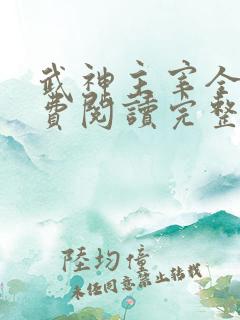 武神主宰全
費閱讀完整
陸均僮
未經同意禁止轉載